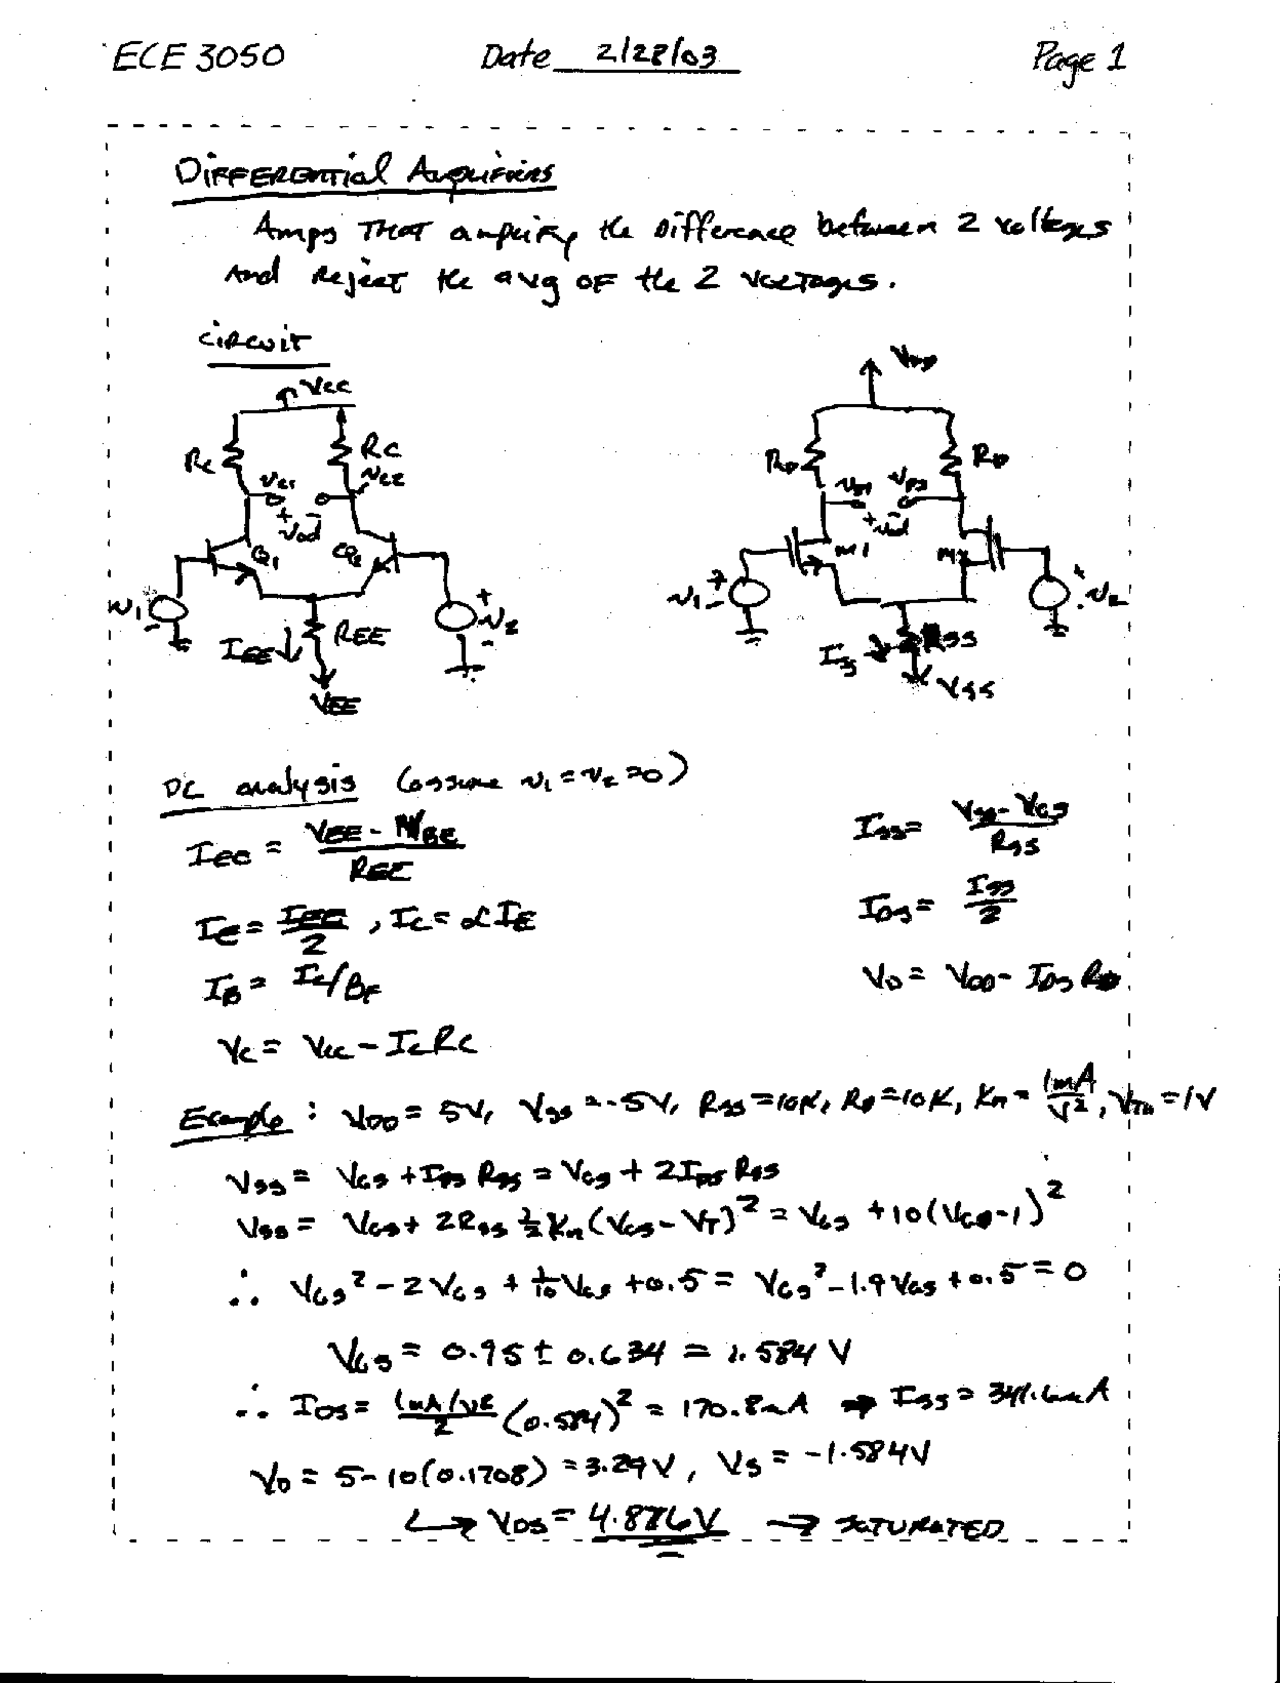 ECE 3050 Date 2/28/03 Page 1
DIFFERENTIAL AMPLIFIERS
Amps THAT amplify the Difference between 2 voltages
And Reject the avg OF the 2 VOLTAGES.
CIRCUIT
VCC
RC RC
vC1 vC2
+ vod -
Q1 Q2
v1 - + v2 -
IEE REE
VEE
VDD
RD RD
vD1 vD2
+ vod -
M1 M2
v1 + - + v2 -
RSS
VSS
DC analysis (assume v1 = v2 = 0)
IEE = (VEE - VBE)/REE
ISS = (VSS - VGS)/RSS
IE = IEE/2 , IC = αIE
IDS = ISS/2
IB = IC/βF
VD = VDD - IDS RD
VC = VCC - IC RC
Example : VDD = 5V, VSS = -5V, RSS = 10K, RD = 10K, Kn = 1mA/V², VTN = 1V
VSS = VGS + IDS RSS = VGS + 2IDS RSS
VSS = VGS + 2RSS ½Kn(VGS - VT)² = VGS + 10(VGS - 1)²
∴ VGS² - 2VGS + 1/10 VGS + 0.5 = VGS² - 1.9VGS + 0.5 = 0
VGS = 0.95 ± 0.634 = 1.584 V
∴ IDS = (1mA/V²)/2 (0.584)² = 170.8uA → ISS = 341.6uA
VD = 5 - 10(0.1708) = 3.29V, VS = -1.584V
↳ VDS = 4.876V → SATURATED